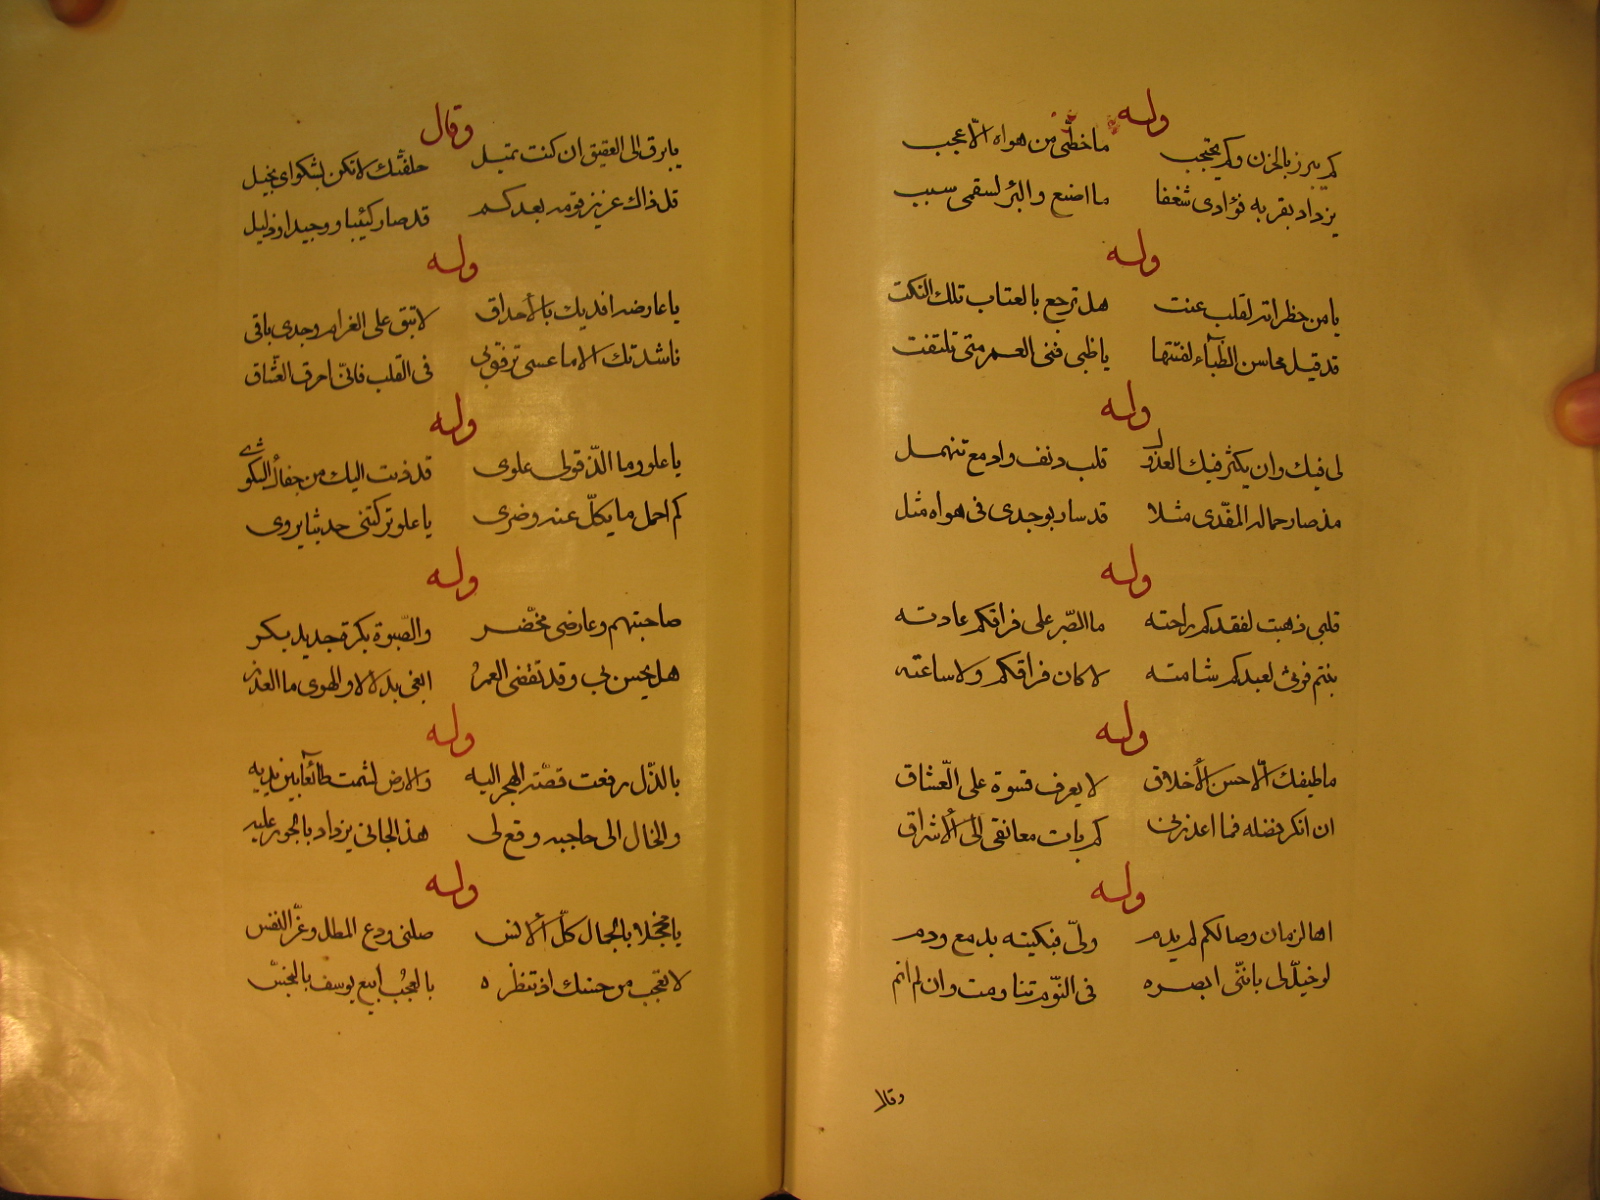 وله
كم يبرز بالحزن وكم يحتجب ما خطّي من هواه الا عجب
يزداد بقربه فؤادى شغفا ما اصنع والبرّ لسقمى سبب
وله
يا من خطراته لقلب عنت هل ترجع بالعتاب تلك النكت
قد قيل محاسن الظبآء لفتتها يا ظبى فنى العمر متى تلتفت
وله
لى فيك وان يكثر فيك العذل قلب دنف وادمع تنهمل
مذ صار جماله المفدى مثلا قد سار بوجدى فى هواه مثل
وله
قلبى ذهبت لفقدكم راحته ما الصّبر على فراقكم عادته
بنتم فرثى لعبدكم شامته لا كان فراقكم ولا ساعته
وله
ما طيفك الّا حسن الأخلاق لا يعرف قسوة على العشّاق
ان انكر فضله فما اعذرنى كم بات معانقى الى الأشراق
وله
اها لزمان وصالكم لم يدم ولّى فبكيته بدمع ودم
لو خيّل لى باننّى ابصره فى النّوم تناومت وان لم انم
وقال
وقال
يا برق الى العقيق ان كنت تميل حلفتك لا تكن بشكواى بخيل
قل ذاك عزيز قومه بعدكم قد صار كئيبا ووحيدا وذليل
وله
يا عارضه افديك بالأحداق لا تبق على الغرام وجدى باقى
ناشدتك الا ما عسى ترفق بى فى القلب فانّى احرق العشّاق
وله
يا علو وما الذّ قولى علوى قد ذبت اليك من جفاك الشكوى
كم احمل ما يكلّ عنه رضوى يا علو تركتنى حديثا يروى
وله
صاحبتهم وعارضى مخضّر والصّبوة بكرة جديد بكر
هل يحسن بى وقد تقضى العمرُ ابغى بدلا لا والهوى ما العذر
وله
بالذّل رفعت قصّة الهجر اليه والارض لثمت طآئعا بين يديه
والخال الى حاجبه وقع لى هذا لجانى يزداد بالجور عليه
وله
يا مخجلا بالجمال كلّ الأنس صلنى ودع المطل وغرّ النفس
لا تعجب من حسنك اذ تنظره بالعجُب ابيع يوسف بالبخس